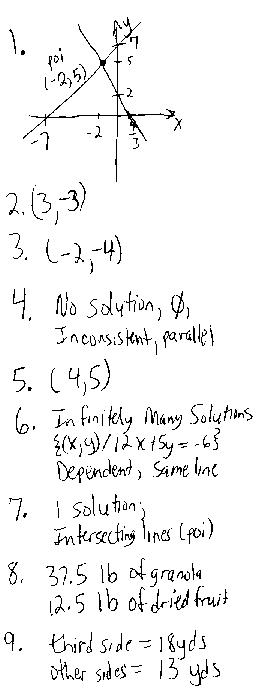 1.
y
7
poi
(-2,5)
5
2
-7
-2
4/3
x
2. (3,-3)
3. (-2,-4)
4. No solution, Ø,
Inconsistent, parallel
5. (4,5)
6. Infinitely Many Solutions
{(x,y)/12x+5y=-6}
Dependent, Same line
7. 1 solution;
Intersecting lines (poi)
8. 37.5 lb of granola
12.5 lb of dried fruit
9. third side = 18yds
other sides = 13 yds